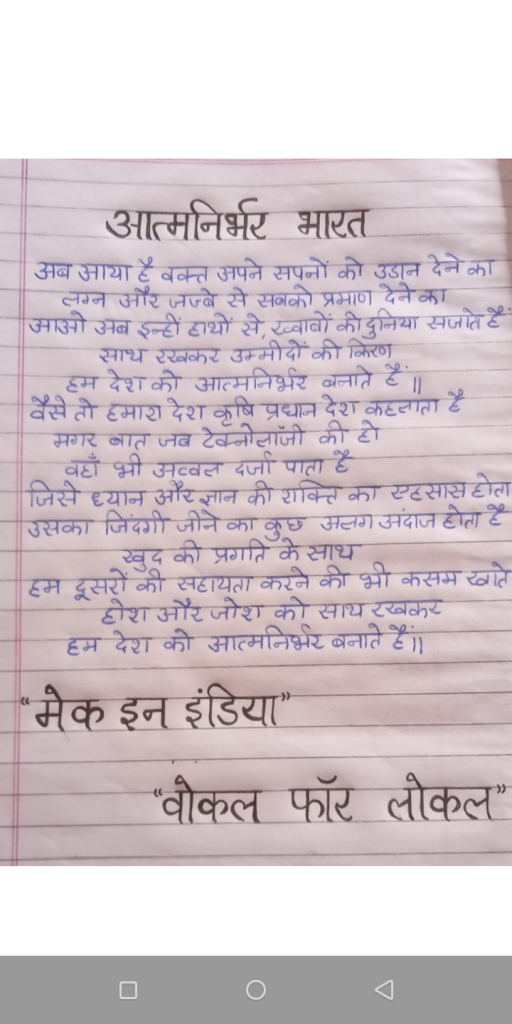 आत्मनिर्भर भारत
अब आया है वक्त अपने सपनों को उडान देने का
लग्न और जज्बे से सबको प्रमाण देने का
आओ अब इन्हीं हाथों से, ख्वाबों की दुनिया सजाते हैं
साथ रखकर उम्मीदों की किरण
हम देश को आत्मनिर्भर बनाते हैं॥
वैसे तो हमारा देश कृषि प्रधान देश कहलाता है
मगर बात जब टेक्नोलॉजी की हो
वहाँ भी अव्वल दर्जा पाता है
जिसे ध्यान और ज्ञान की शक्ति का एहसास होता
उसका जिंदगी जीने का कुछ अलग अंदाज होता है
खुद की प्रगति के साथ
हम दूसरों की सहायता करने की भी कसम खाते
होश और जोश को साथ रखकर
हम देश को आत्मनिर्भर बनाते हैं॥
"मेक इन इंडिया"
"वोकल फॉर लोकल"